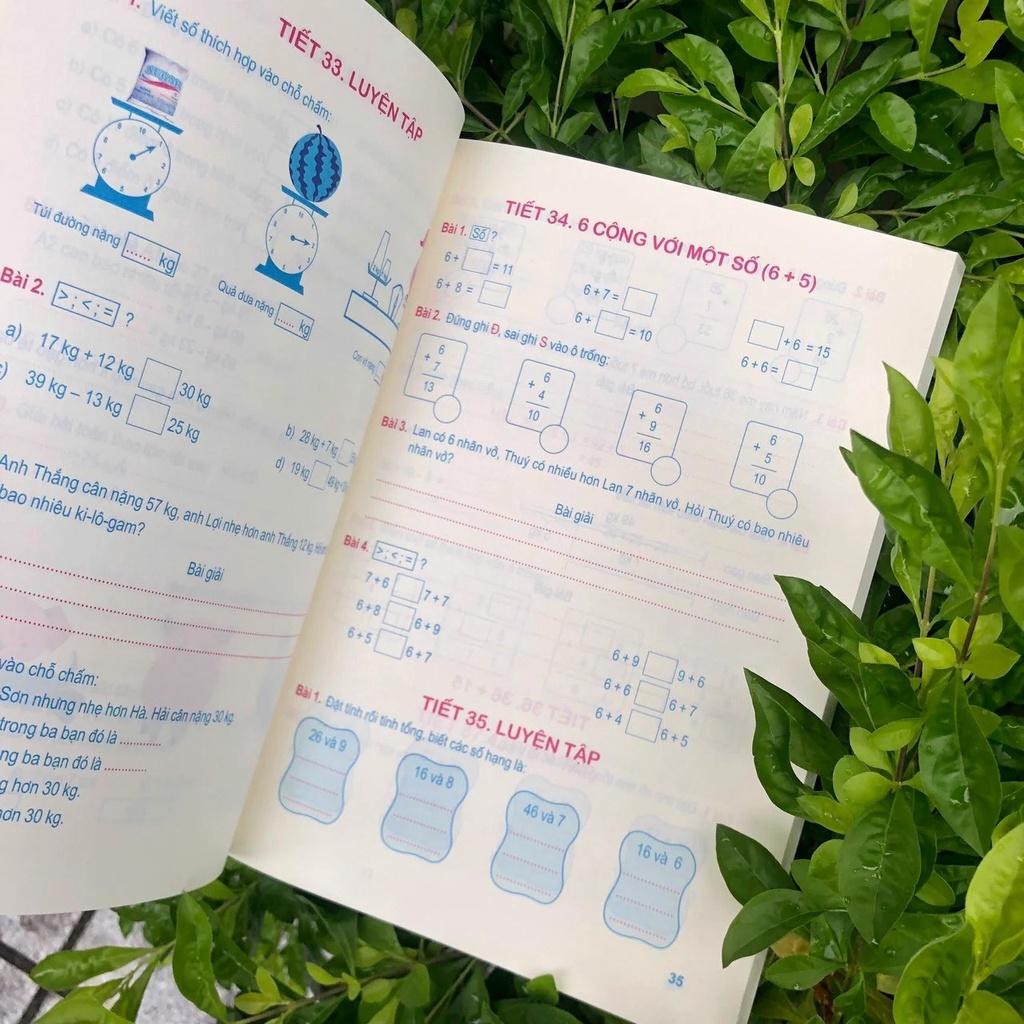 TIẾT 33. LUYỆN TẬP
1. Viết số thích hợp vào chỗ chấm:
Túi đường nặng ...... kg
Quả dưa nặng ...... kg
Bài 2. >; <; = ?
a) 17 kg + 12 kg 30 kg
39 kg – 13 kg 25 kg
b) 28 kg + 7 kg
d) 19 kg
Anh Thắng cân nặng 57 kg, anh Lợi nhẹ hơn anh Thắng 12 kg.
bao nhiêu ki-lô-gam?
Bài giải
vào chỗ chấm:
Sơn nhưng nhẹ hơn Hà. Hải cân nặng 30 kg.
trong ba bạn đó là ..........
ng ba bạn đó là ..........
hơn 30 kg.
hơn 30 kg.
TIẾT 34. 6 CỘNG VỚI MỘT SỐ (6 + 5)
Bài 1. Số ?
6 + = 11
6 + 7 =
+ 6 = 15
6 + 8 =
6 + = 10
6 + 6 =
Bài 2. Đúng ghi Đ, sai ghi S vào ô trống:
6
+ 7
13
6
+ 4
10
6
+ 9
16
6
+ 5
10
Bài 3. Lan có 6 nhãn vở, Thuý có nhiều hơn Lan 7 nhãn vở. Hỏi Thuý có bao nhiêu
nhãn vở?
Bài giải
Bài 4. >; <; = ?
7 + 6 7 + 7
6 + 9 9 + 6
6 + 8 6 + 9
6 + 6 6 + 7
6 + 5 6 + 7
6 + 4 6 + 5
TIẾT 35. LUYỆN TẬP
Bài 1. Đặt tính rồi tính tổng, biết các số hạng là:
26 và 9
16 và 8
46 và 7
16 và 6
35